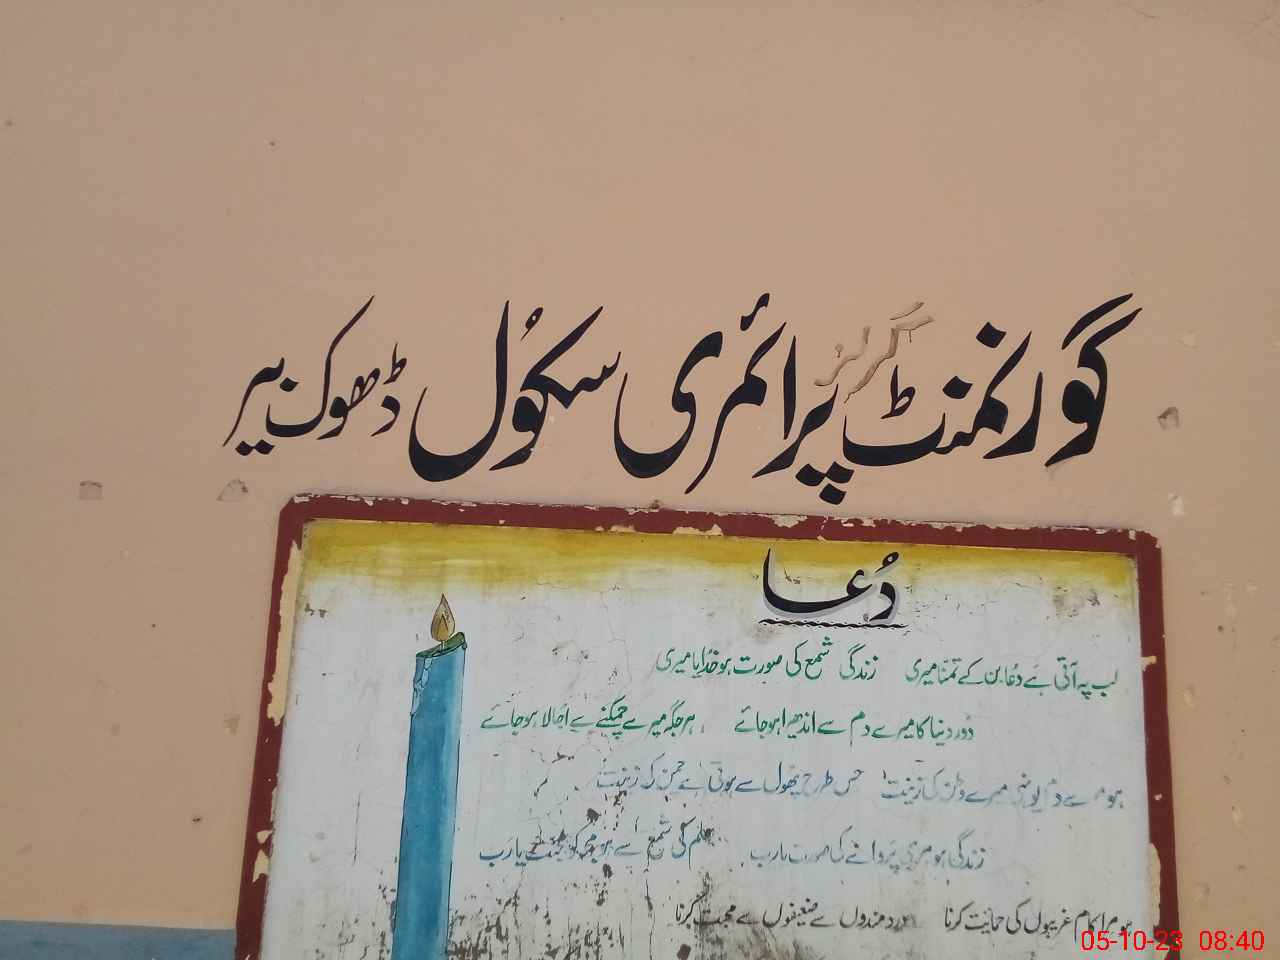 گورنمنٹ گرلز پرائمری سکُول ڈھوک بیر
دُعا
لب پہ آتی ہے دُعا بن کے تمنّا میری زندگی شمع کی صورت ہو خدُایا میری
دُور دنیا کا میرے دم سے اندھیرا ہو جائے ہر جگہ میرے چمکنے سے اُجالا ہو جائے
ہو میرے دم یونہی میرے وطن کی زینت جس طرح پھُول سے ہوتی ہے چمن کی زینت
زندگی ہو مری پَروانے کی صورت یارب علم کی شمع سے ہو مجھ کو محبت یارَب
ہو مرا کام غریبوں کی حمایت کرنا دردمندوں سے ضعیفوں سے محبت کرنا
05-10-23 08:40